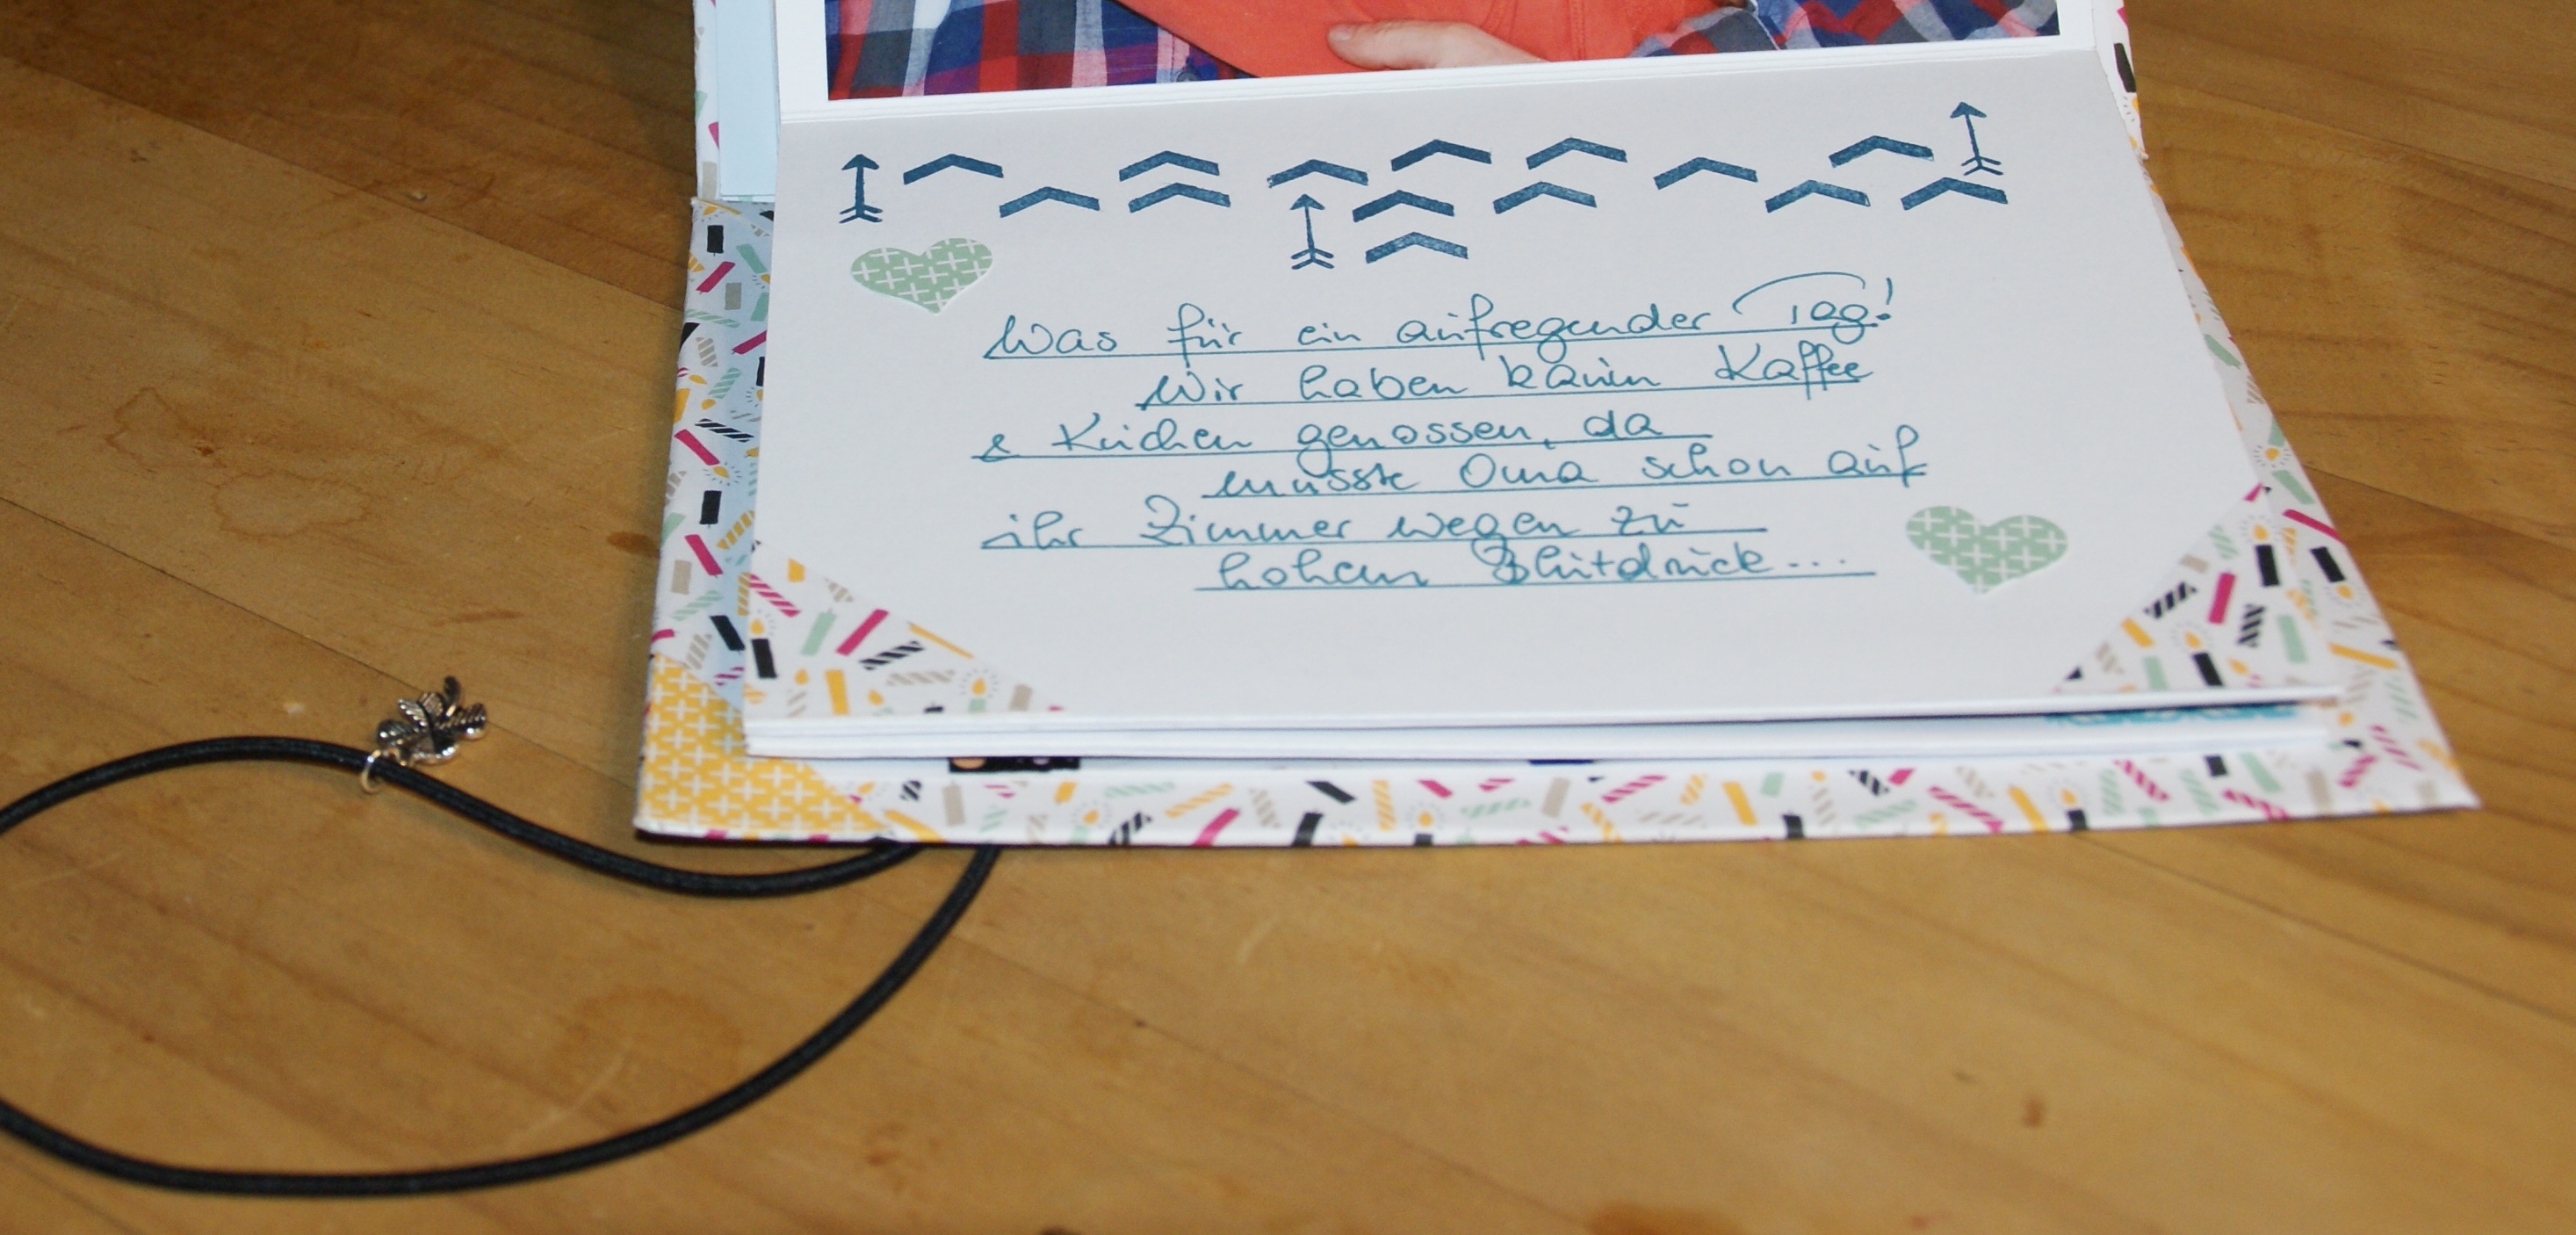 Was für ein aufregender Tag!
Wir haben kaum Kaffee
& Kuchen genossen, da
musste Oma schon auf
ihr Zimmer wegen zu
hohem Blutdruck...